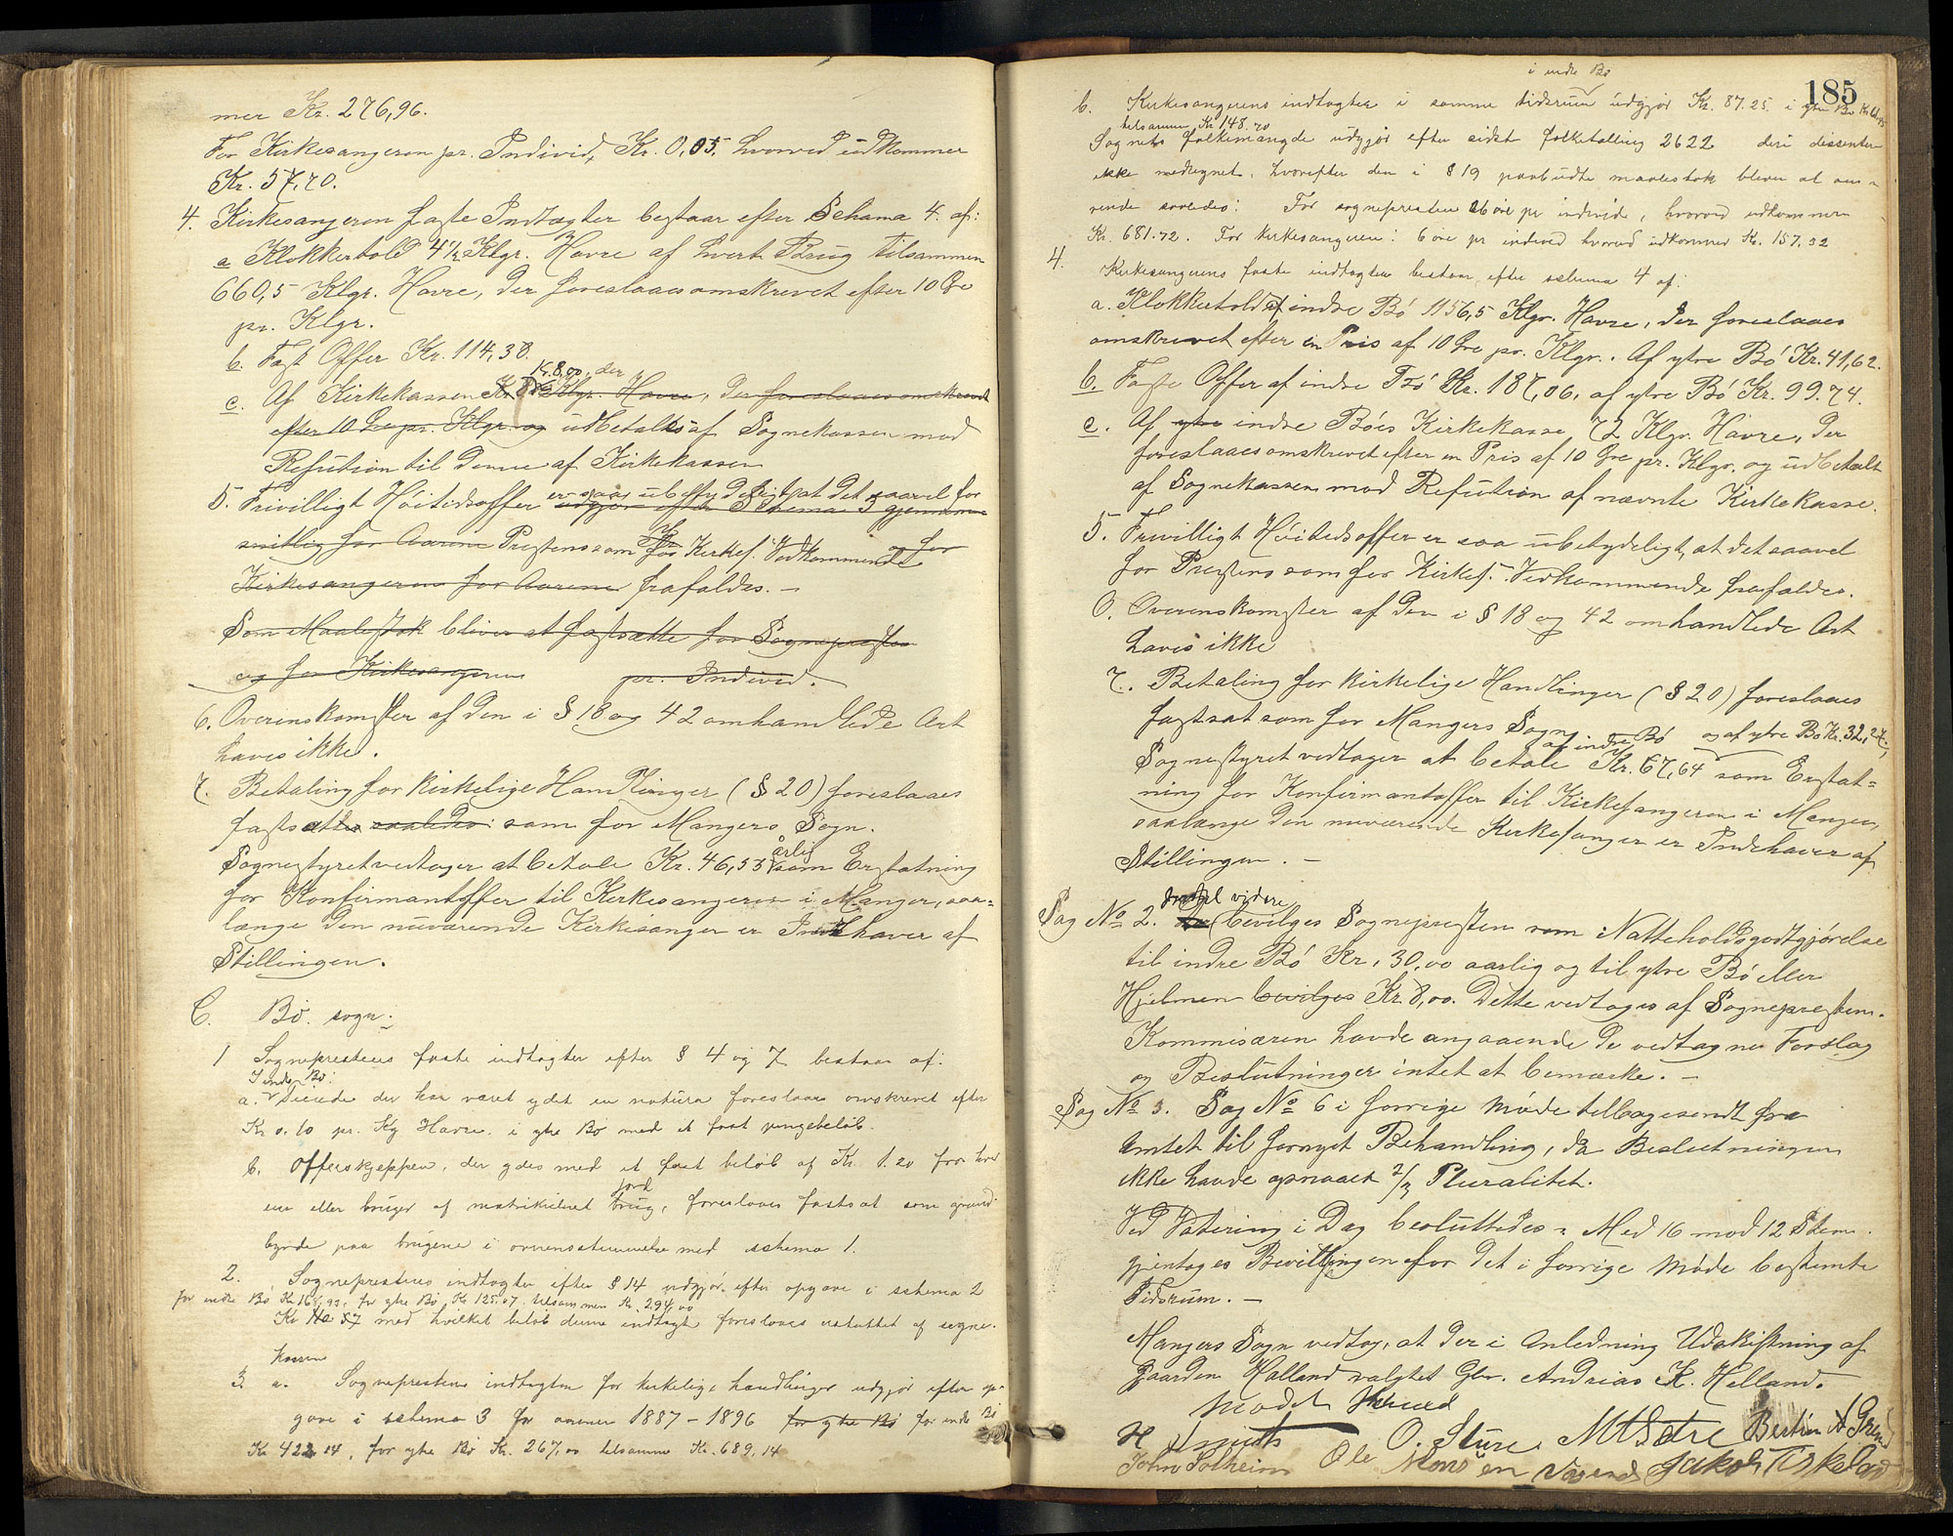 mer Kr. 276,96.
For Kirkesangeren pr. Individ, Kr. 0,05. hvorved udkommer
Kr. 57,70.
4. Kirkesangeren faste Indtægter bestaar efter Schema 4. af:
a Klokkertold 4½ Klgr. Havre af hvert Brug tilsammen
660,5 Klgr. Havre, der foreslaaes omskrevet efter 10 Øre
pr. Klgr.
b. Fast Offer Kr. 114,38.
Kr. 8,00, der
c. Af Kirkekassen Klgr. Havre, der foreslaaes omskrevet
efter 10 Øre pr. Klgr. og udbetales af Sognekassen mod
Refution til denne af Kirkekassen
er saa ubetydeligt, at det saavel for
5. Frivilligt Höitidsoffer udgjør efter Schema 3 gjennem
snitlig for Aarene Prestens som for Kirkes. Vedkommende og for
Kirkesangeren for Aarene frafaldes. -
Som Maalestok bliver at fastsætte for Sognepresten
og for Kirkesangeren pr. Individ.
6. Overenskomster af den i § 18 og 42 omhandlede Art
haves ikke.
7. Betaling for kirkelige Handlinger (§ 20) foreslaaes
fastsatte saaledes: som for Mangers Sogn.
årlig
Sognestyret vedtager at betale Kr. 46,53 som Erstatning
for Konfirmantoffer til Kirkesangeren i Manger, saa=
længe den nuværende Kirkesanger er Indehaver af
Stillingen.
C. Bö. sogn:
1 Sogneprestens faste indtægter efter § 4 og 7 bestaar af:
I indre Bö:
a. Tiende der har været ydet in natura foreslaaes omskrevet efter
Kr. 0.10 pr. Kg Havre. i ytre Bö med et fast pengebeløb.
b. Offerskjeppen, der ydes med et fast beløb af Kr. 1.20 for hver
jord
eier eller bruger af matrikuleret brug, foreslaaes fastsat som grund
byrde paa brugene i overensstemmelse med schema 1.
2. Sogneprestens indtægter efter § 14 udgjør efter opgave i schema 2
for indre Bö Kr. 168,93, for ytre Bö Kr. 125.07 tilsammen Kr. 294,00
Kr. med hvilket beløb denne indtægt foreslaaes erstattet af sogne-
kassen
3. a. Sogneprestens indtægter for kirkelige handlinger udgjør efter op-
gave i schema 3 for aarene 1887-1896 for ytre Bö for indre Bö
Kr. 422.14, for ytre Bö Kr. 267,00 tilsammen Kr. 689,14
185
i indre Bö
b. Kirkesangerens indtægter i samme tidsrum udgjør Kr. 87.25 i ytre Bö
tilsammen Kr 148.70
Sognets folkemængde udgjør efter sidste folketælling 2622 deri dissentere
ikke medregnet, hvorefter den i § 19 paabudte maalestok bliver at
saaledes: For sognepresten 26 øre pr individ, hvorved udkommer
Kr. 681.72. For kirkesangeren: 6 øre pr individ hvorved udkommer Kr. 157,32
4. Kirkesangerens faste indtægter bestaar efter schema 4 af:
a. Klokkertold af indre Bö 1156,5 Klgr. Havre, der foreslaaes
omskrevet efter en Pris af 10 Øre pr. Klgr. Af ytre Bö Kr. 41,62.
b. Faste Offer af indre Bö Kr. 187,06, af ytre Bö Kr. 99.74.
c. Af ytre indre Böes Kirkekasse 72 Klgr. Havre, der
foreslaaes omskrevet efter en Pris af 10 Øre pr. Klgr. og udbetalt
af Sognekassen mod Refution af nævnte Kirkekasse.
5. Frivilligt Höitidsoffer er saa ubetydeligt, at det saavel
for Prestens som for Kirkes. Vedkommende frafaldes.
6. Overenskomster af den i § 18 og 42 omhandlede Art
haves ikke
7. Betaling for kirkelige Handlinger (§ 20) foreslaaes
fastsat som for Mangers Sogn.
af indre Bö og af ytre Bö Kr. 32,27,
Sognestyret vedtager at betale Kr. 67,64 som Erstat=
ning for Konfirmantoffer til Kirkesangeren i Manger,
saalænge den nuværende Kirkesanger er Indehaver af
Stillingen. -
Indtil videre
Sag No 2. bevilges Sognepresten som Natteholdsgodtgjørelse
til indre Bö Kr. 30,00 aarlig og til ytre Bö eller
Hjelmen bevilges Kr. 8,00. Dette vedtages af Sognepresten.
Kommisæren havde angaaende de vedtagne Forslag
og Beslutninger intet at bemærke. -
Sag No 3. Sag No 6 i forrige Møde tilbagesendt fra
Amtet til fornyet Behandling, da Beslutningen
ikke havde opnaaet 2/3 Pluralitet.
Ved Votering i Dag besluttedes: Med 16 mod 12 Stem.
gjentages Bevillingen for det i forrige Møde bestemte
Tidsrum. -
Mangers Sogn vedtog, at der i Anledning Udskiftning af
Gaarden Halland valgtes Gbr. Andreas K. Helland.
Mødet Hævet
O. Sture. M H Sætre Bertin A
John Solheim Ole Monsen Jakob Tiskeland